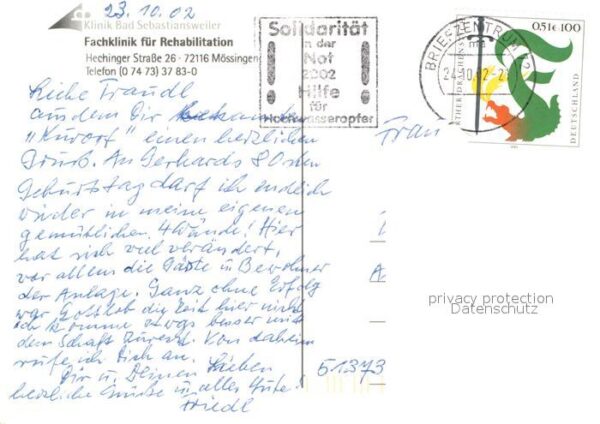 23.10.02
Klinik Bad Sebastiansweiler
Fachklinik für Rehabilitation
Hechinger Straße 26 - 72116 Mössingen
Telefon (0 74 73) 37 83-0
Solidarität
in der
Not
2002
Hilfe
für
Hochwasseropfer
BRIEFZENTRUM 72
ma
24.10.02-21
0,51€+100
DEUTSCHLAND
Liebe Traudl
aus dem Dir bekannten
"Kurort" einen herzlichen
Gruß. An Gerhards 80sten
Geburtstag darf ich endlich
wieder in meine eigenen
gemütlichen 4 Wände! Hier
hat sich viel verändert,
vor allem die Gäste u. Bewohner
der Anlage. Ganz ohne Erfolg
war Gottlob die Zeit hier nicht
ich komme etwas besser mit
dem Schaft zurecht. Von daheim
rufe ich Dich an.
Dir u. Deinen Lieben
herzliche Grüße u. alles Gute!
Friedl
Frau
51373
privacy protection
Datenschutz